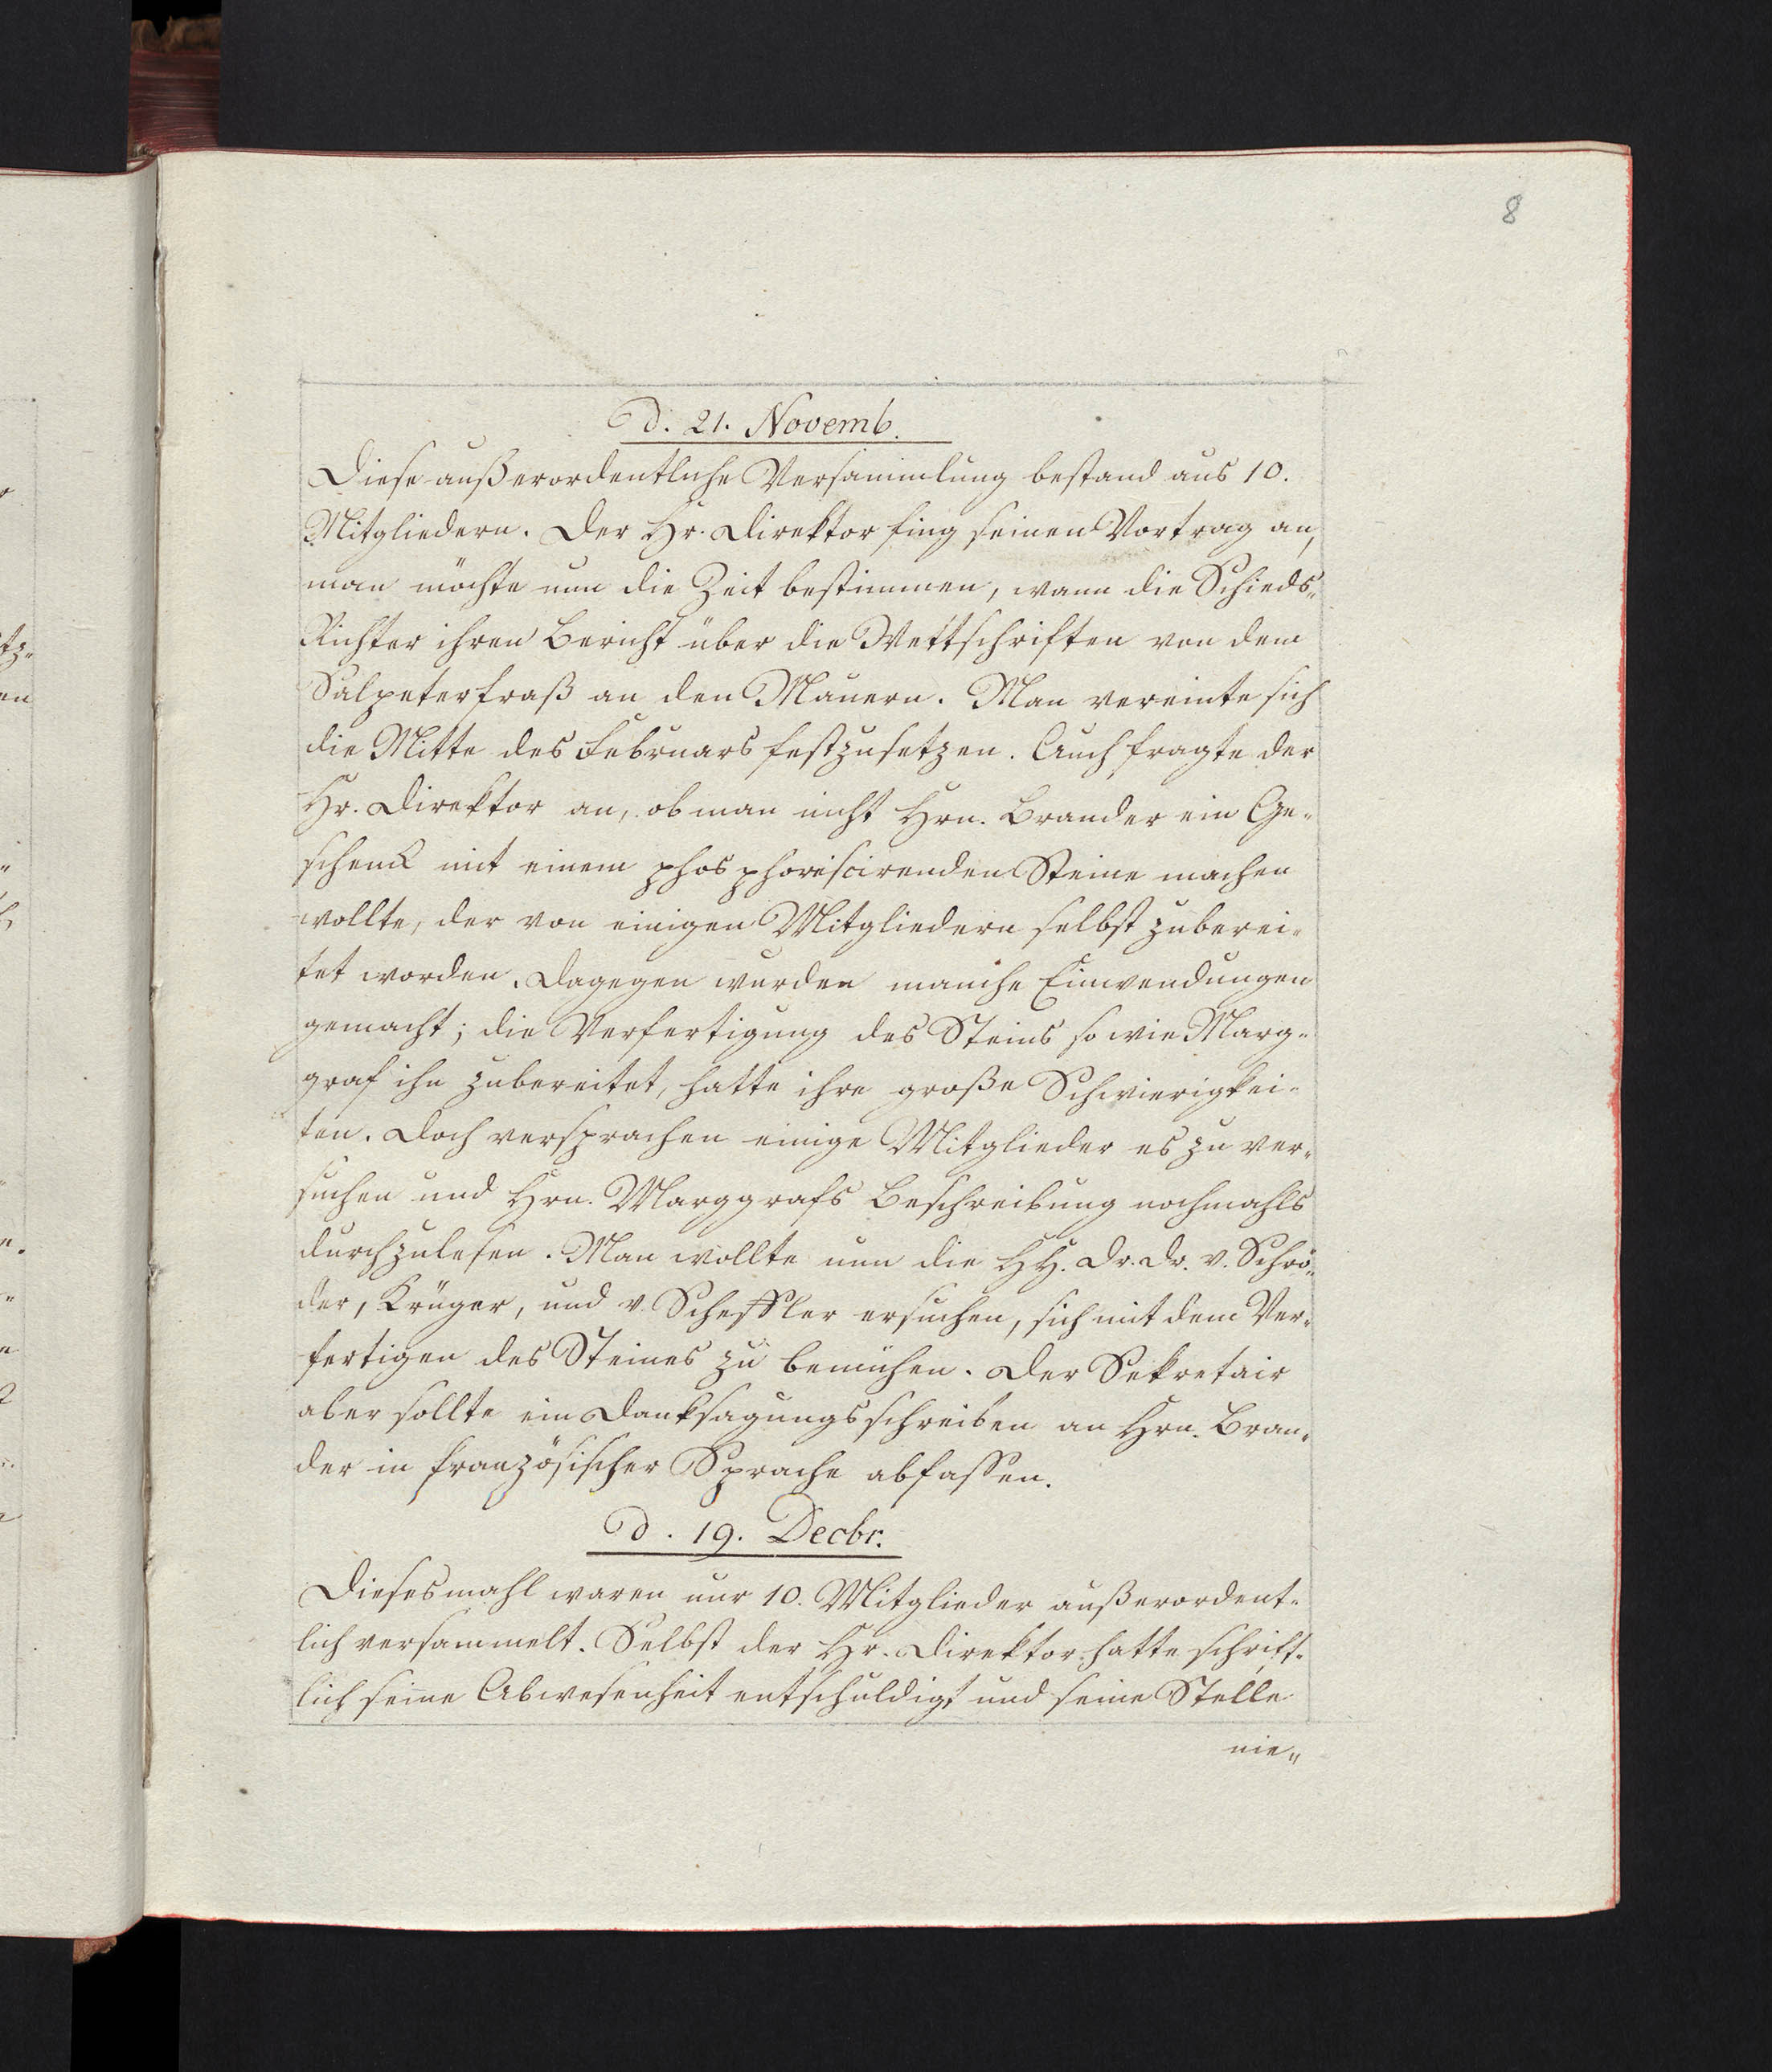 8
d. 21. Novemb.
Diese außerordentliche Versammlung bestand aus 10.
Mitgliedern. Der Hr. Direktor fing seinen Vortrag an,
man möchte nun die Zeit bestimmen, wann die Schieds-
Richter ihren Bericht über die Wettschriften von dem
Salpeterfraß an den Mauern. Man vereinte sich
die Mitte des Februars festzusetzen. Auch fragte der
Hr. Direktor an, ob man nicht Hrn. Brander ein Ge-
schenk mit einem phosphorescirenden Steine machen
wollte, der von einigen Mitgliedern selbst zuberei-
tet worden. Dagegen wurden manche Einwendungen
gemacht; die Verfertigung des Steins so wie Marg-
graf ihn zubereitet, hatte ihre große Schwierigkei-
ten. Doch versprachen einige Mitglieder es zu ver-
suchen und Hrn. Marggrafs Beschreibung nochmahls
durchzulesen. Man wollte nun die HH. Dr. Dr. v. Schrö-
der, Krüger, und v. Scheffler ersuchen, sich mit dem Ver-
fertigen des Steines zu bemühen. Der Sekretair
aber sollte ein Danksagungsschreiben an Hrn. Bran-
der in französischer Sprache abfassen.
d. 19. Decbr.
Diesesmahl waren nur 10. Mitglieder außerordent-
lich versammelt. Selbst der Hr. Direktor hatte schrift-
lich seine Abwesenheit entschuldigt und seine Stelle
nie-